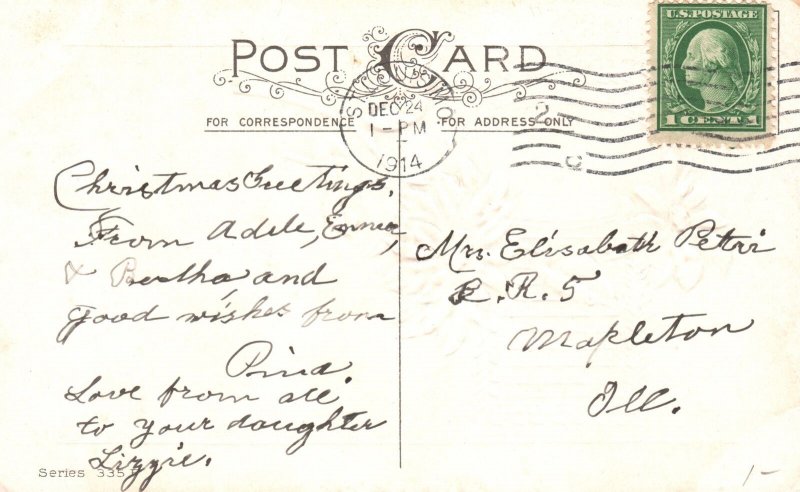 POST CARD
FOR CORRESPONDENCE
FOR ADDRESS ONLY
DEC 24
1-PM
1914
2
U.S. POSTAGE
1 CENT 1
Christmas Greetings,
From Adele, Emma,
& Bertha, and
good wishes from
Love from all
to your daughter
Lizzie.
Mrs. Elisabath Petri
R. R. 5
Mapleton
Ill.
Series 335
1-